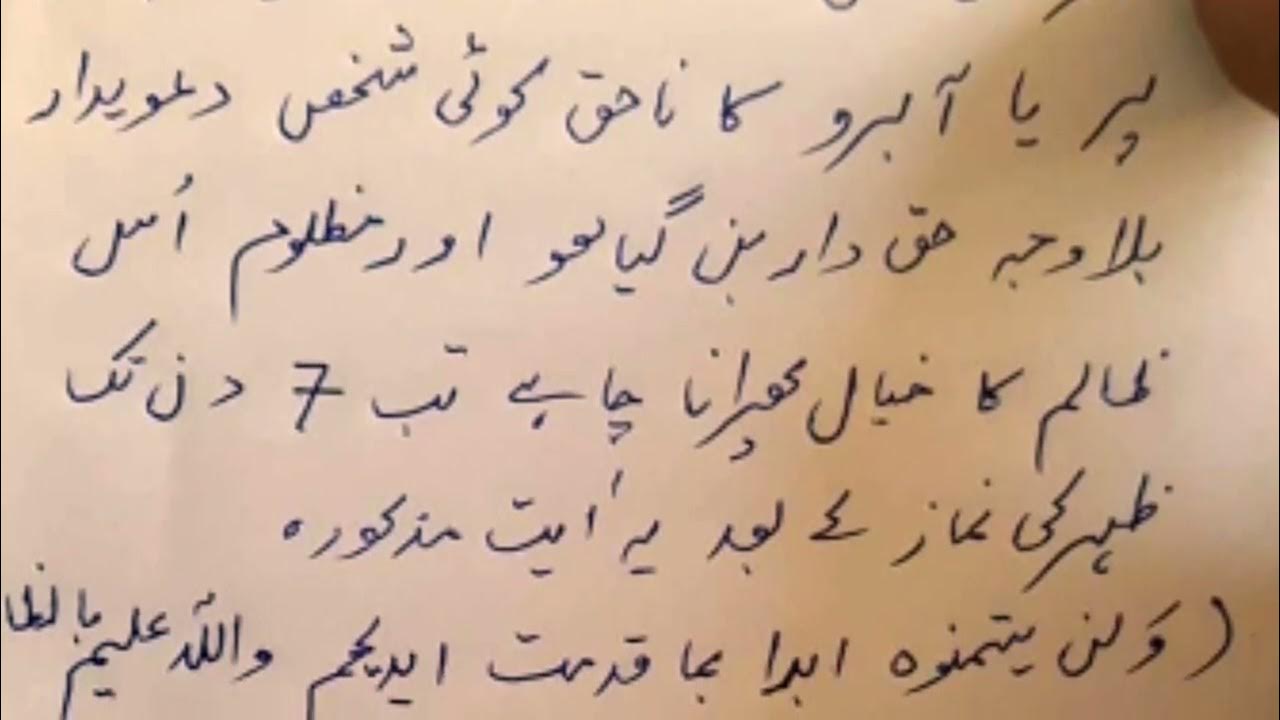 پر یا آبرو کا ناحق کوئی شخص دعویدار
بلاوجہ حق دار بن گیا ھو اور مظلوم اُس
ظالم کا خیال پھرانا چاہے تب 7 دن تک
ظہر کی نماز کے بعد یہ اٰیت مذکورہ
(وَلن یتمنوہ ابدا بما قدمت ایدیھم واللہ علیم بالظا